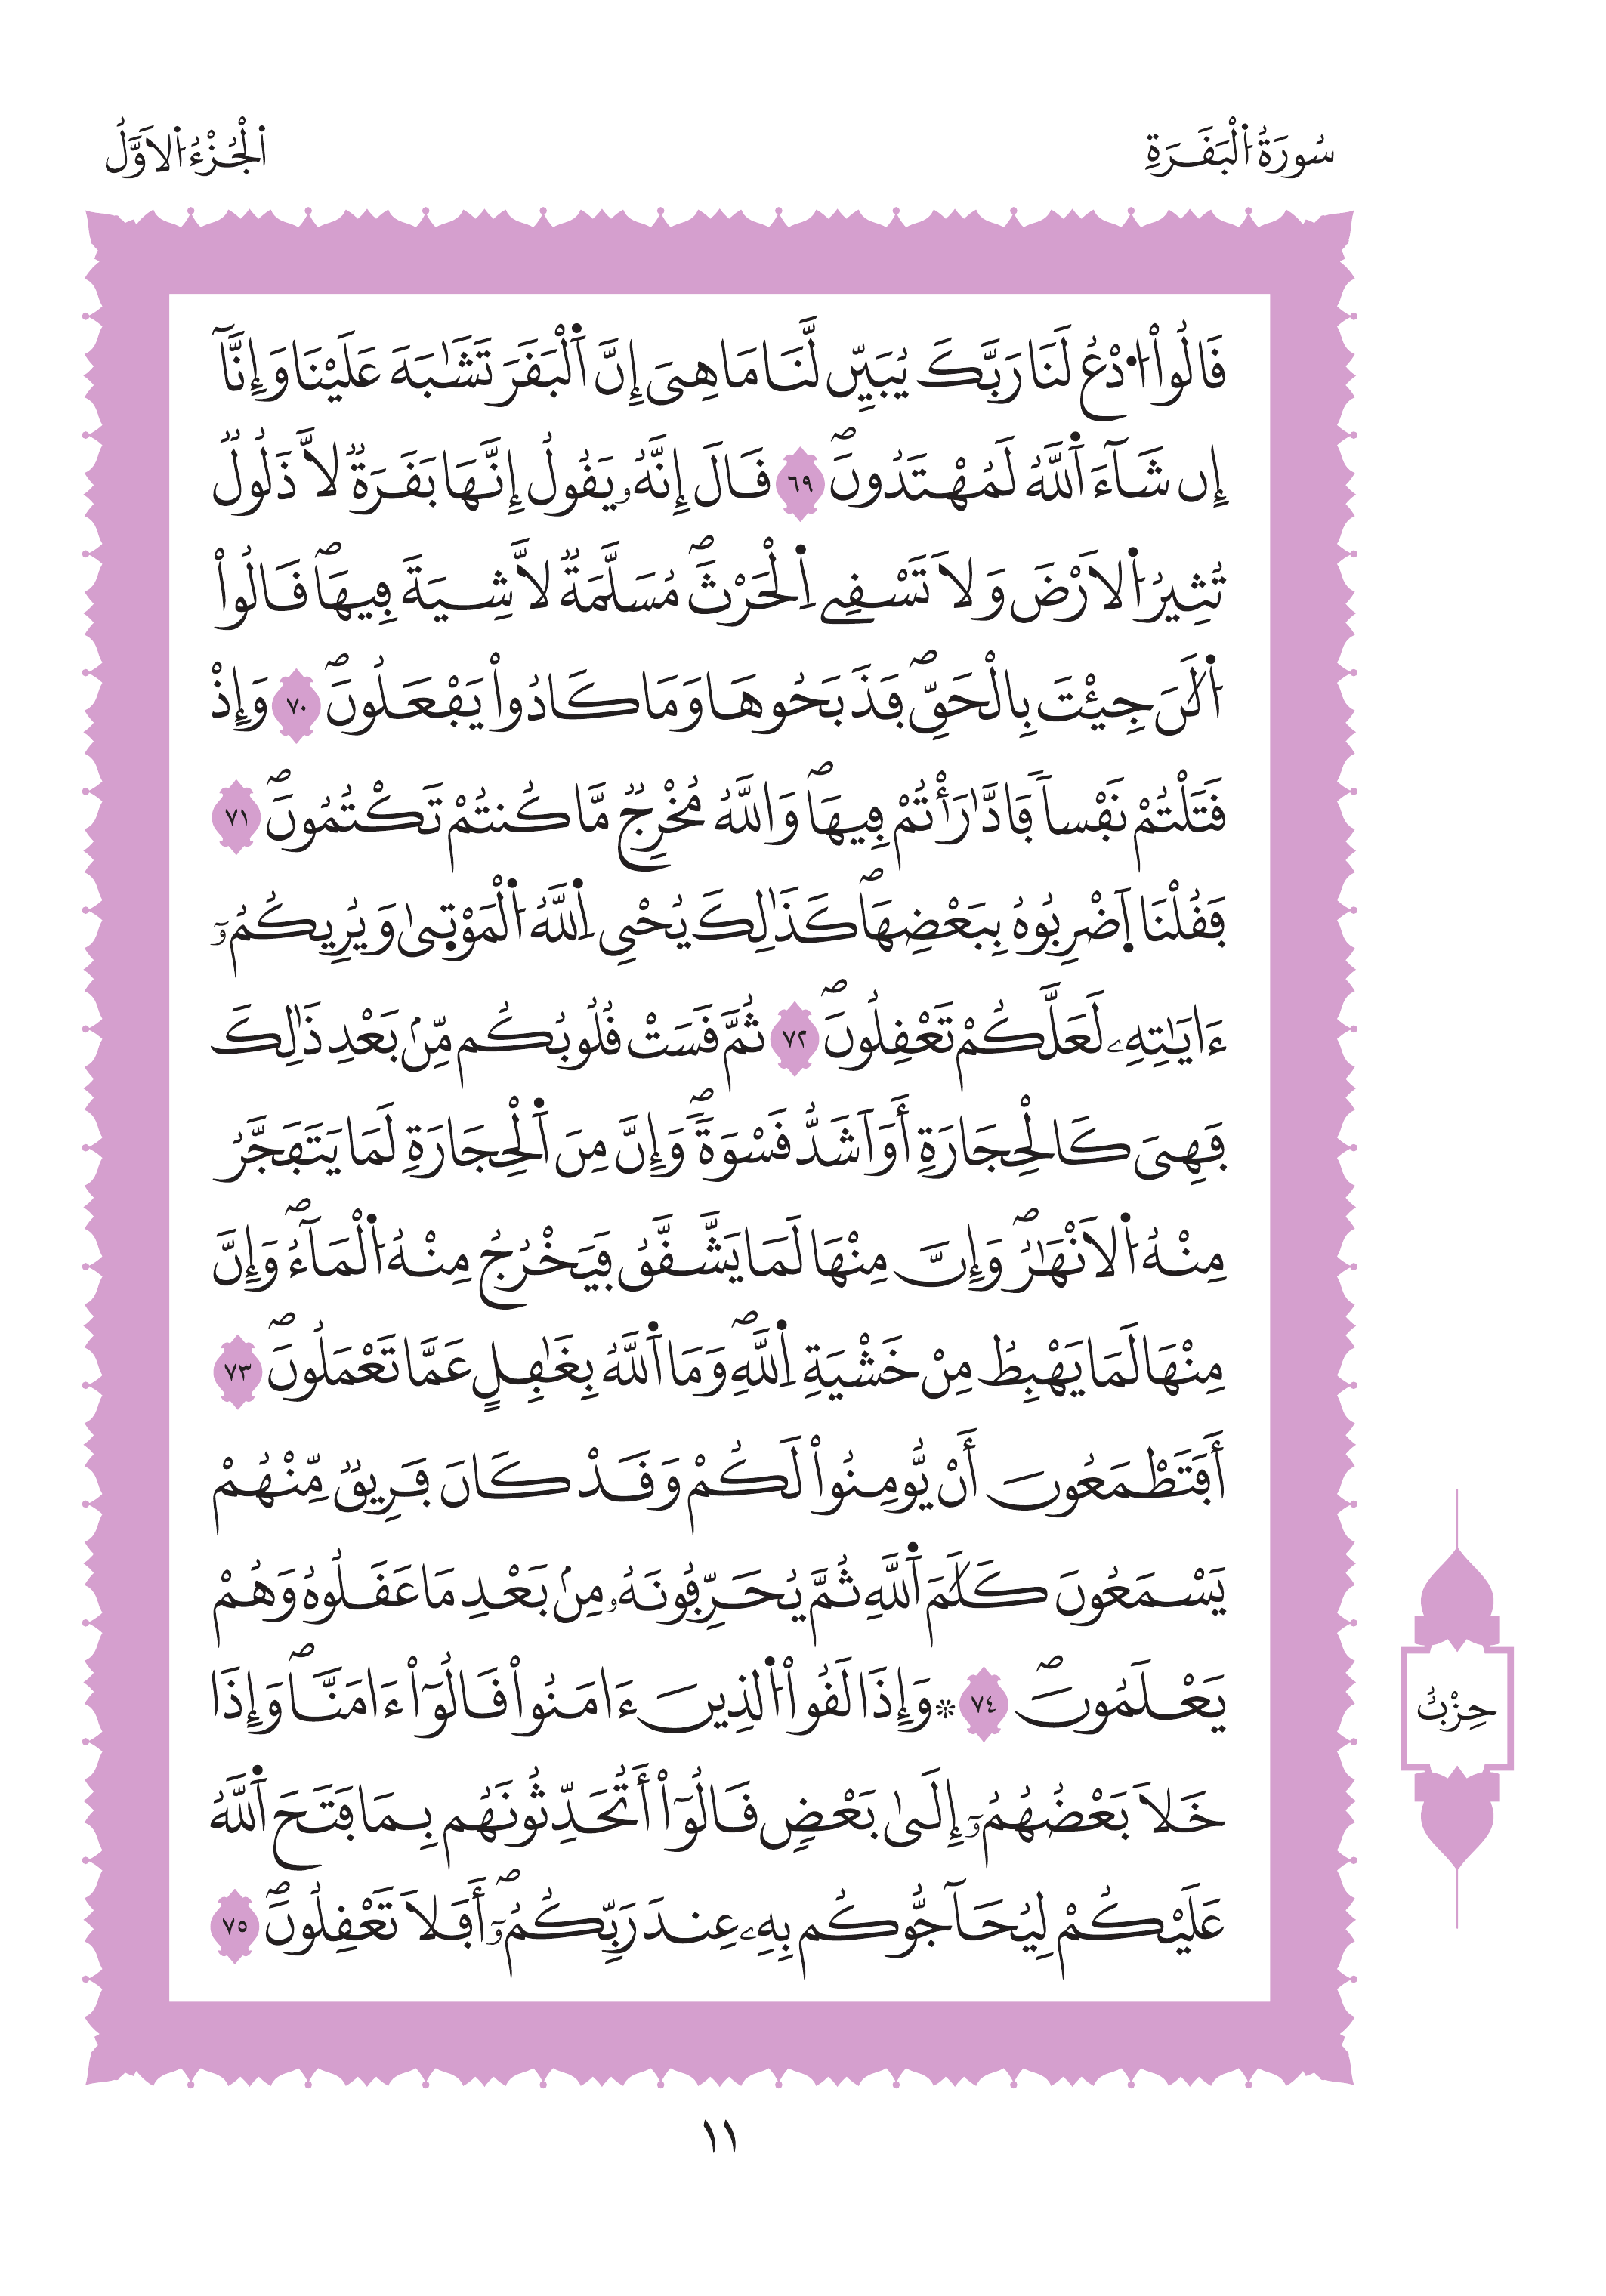 سُورَةُ اُ۬لْبَقَرَةِ
اَ۬لْجُزْءُ اُ۬لَاوَّلُ
قَالُواْ اُ۟دْعُ لَنَا رَبَّكَ يُبَيِّن لَّنَا مَا هِيَ إِنَّ اَ۬لْبَقَرَ تَشَٰبَهَ عَلَيْنَا وَإِنَّآ
إِن شَآءَ اَ۬للَّهُ لَمُهْتَدُونَۖ ٦٩ قَالَ إِنَّهُۥ يَقُولُ إِنَّهَا بَقَرَةٞ لَّا ذَلُولٞ
تُثِيرُ اُ۬لَارْضَ وَلَا تَسْقِے اِ۬لْحَرْثَۖ مُسَلَّمَةٞ لَّا شِيَةَ فِيهَاۖ قَالُواْ
اُ۬لَٰنَ جِيئْتَ بِالْحَقِّۖ فَذَبَحُوهَا وَمَا كَادُواْ يَفْعَلُونَۖ ٧٠ وَإِذْ
قَتَلْتُمْ نَفْساٗ فَادَّٰرَأْتُمْ فِيهَاۖ وَاللَّهُ مُخْرِجٞ مَّا كُنتُمْ تَكْتُمُونَۖ ٧١
فَقُلْنَا اَ۪ضْرِبُوهُ بِبَعْضِهَاۖ كَذَٰلِكَ يُحْيِ اِ۬للَّهُ اُ۬لْمَوْت۪ىٰ وَيُرِيكُمُۥٓ
ءَايَٰتِهِۦ لَعَلَّكُمْ تَعْقِلُونَۖ ٧٢ ثُمَّ قَسَتْ قُلُوبُكُم مِّنۢ بَعْدِ ذَٰلِكَ
فَهِيَ كَالْحِجَارَةِ أَوَ اَشَدُّ قَسْوَةٗۖ وَإِنَّ مِنَ اَ۬لْحِجَارَةِ لَمَا يَتَفَجَّرُ
مِنْهُ اُ۬لَانْهَٰرُۖ وَإِنَّ مِنْهَا لَمَا يَشَّقَّقُ فَيَخْرُجُ مِنْهُ اُ۬لْمَآءُۖ وَإِنَّ
مِنْهَا لَمَا يَهْبِطُ مِنْ خَشْيَةِ اِ۬للَّهِۖ وَمَا اَ۬للَّهُ بِغَٰفِلٍ عَمَّا تَعْمَلُونَۖ ٧٣
أَفَتَطْمَعُونَ أَنْ يُّومِنُواْ لَكُمْ وَقَدْ كَانَ فَرِيقٞ مِّنْهُمْ
يَسْمَعُونَ كَلَٰمَ اَ۬للَّهِ ثُمَّ يُحَرِّفُونَهُۥ مِنۢ بَعْدِ مَا عَقَلُوهُ وَهُمْ
يَعْلَمُونَۖ ٧٤ ۞وَإِذَا لَقُواْ اُ۬لذِينَ ءَامَنُواْ قَالُوٓاْ ءَامَنَّاۖ وَإِذَا
خَلَا بَعْضُهُمُۥٓ إِلَىٰ بَعْضٖ قَالُوٓاْ أَتُحَدِّثُونَهُم بِمَا فَتَحَ اَ۬للَّهُ
عَلَيْكُمْ لِيُحَآجُّوكُم بِهِۦ عِندَ رَبِّكُمُۥٓۖ أَفَلَا تَعْقِلُونَۖ ٧٥
حِزْبُ
١١